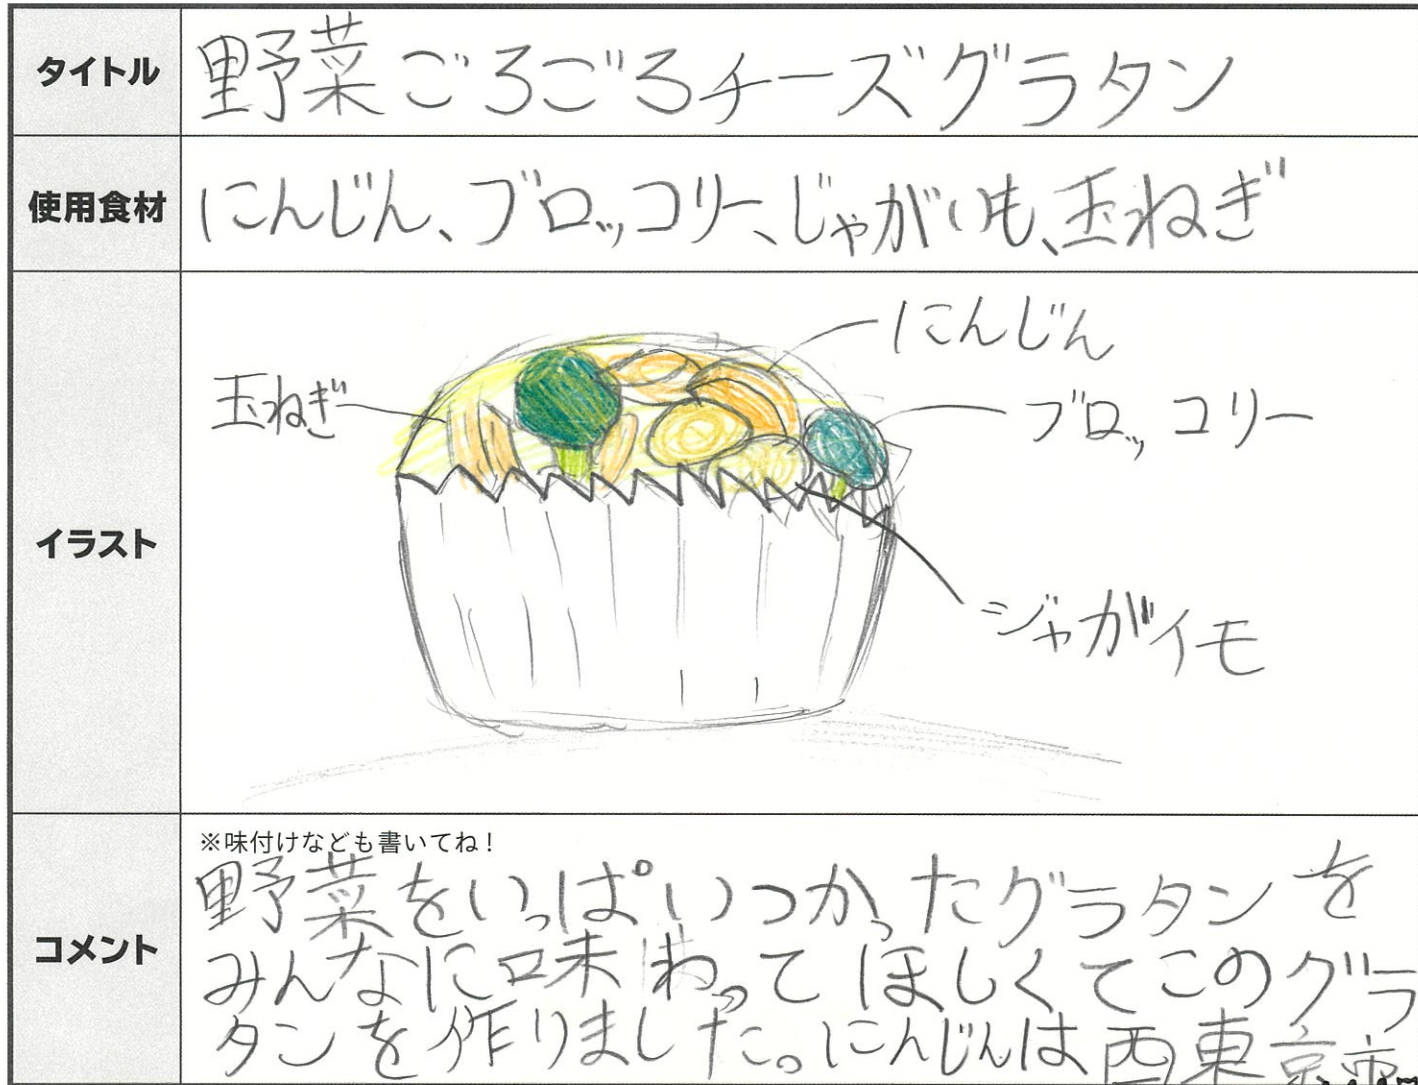 タイトル
野菜ごろごろチーズグラタン
使用食材
にんじん、ブロッコリー、じゃがいも、玉ねぎ
イラスト
にんじん
玉ねぎ
ブロッコリー
ジャがイモ
コメント
※味付けなども書いてね!
野菜をいっぱいつかったグラタンを
みんなに味わってほしくてこのグラ
タンを作りました。にんじんは西東京市